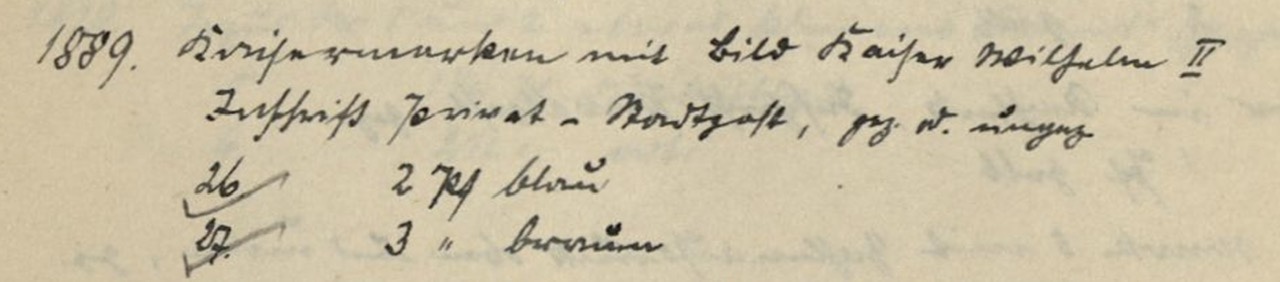 1889. Kaisermarken mit Bild Kaiser Wilhelm II
Inschrift Privat - Stadtpost, gez. od. ungez
26 2 Pf blau
27. 3 " braun